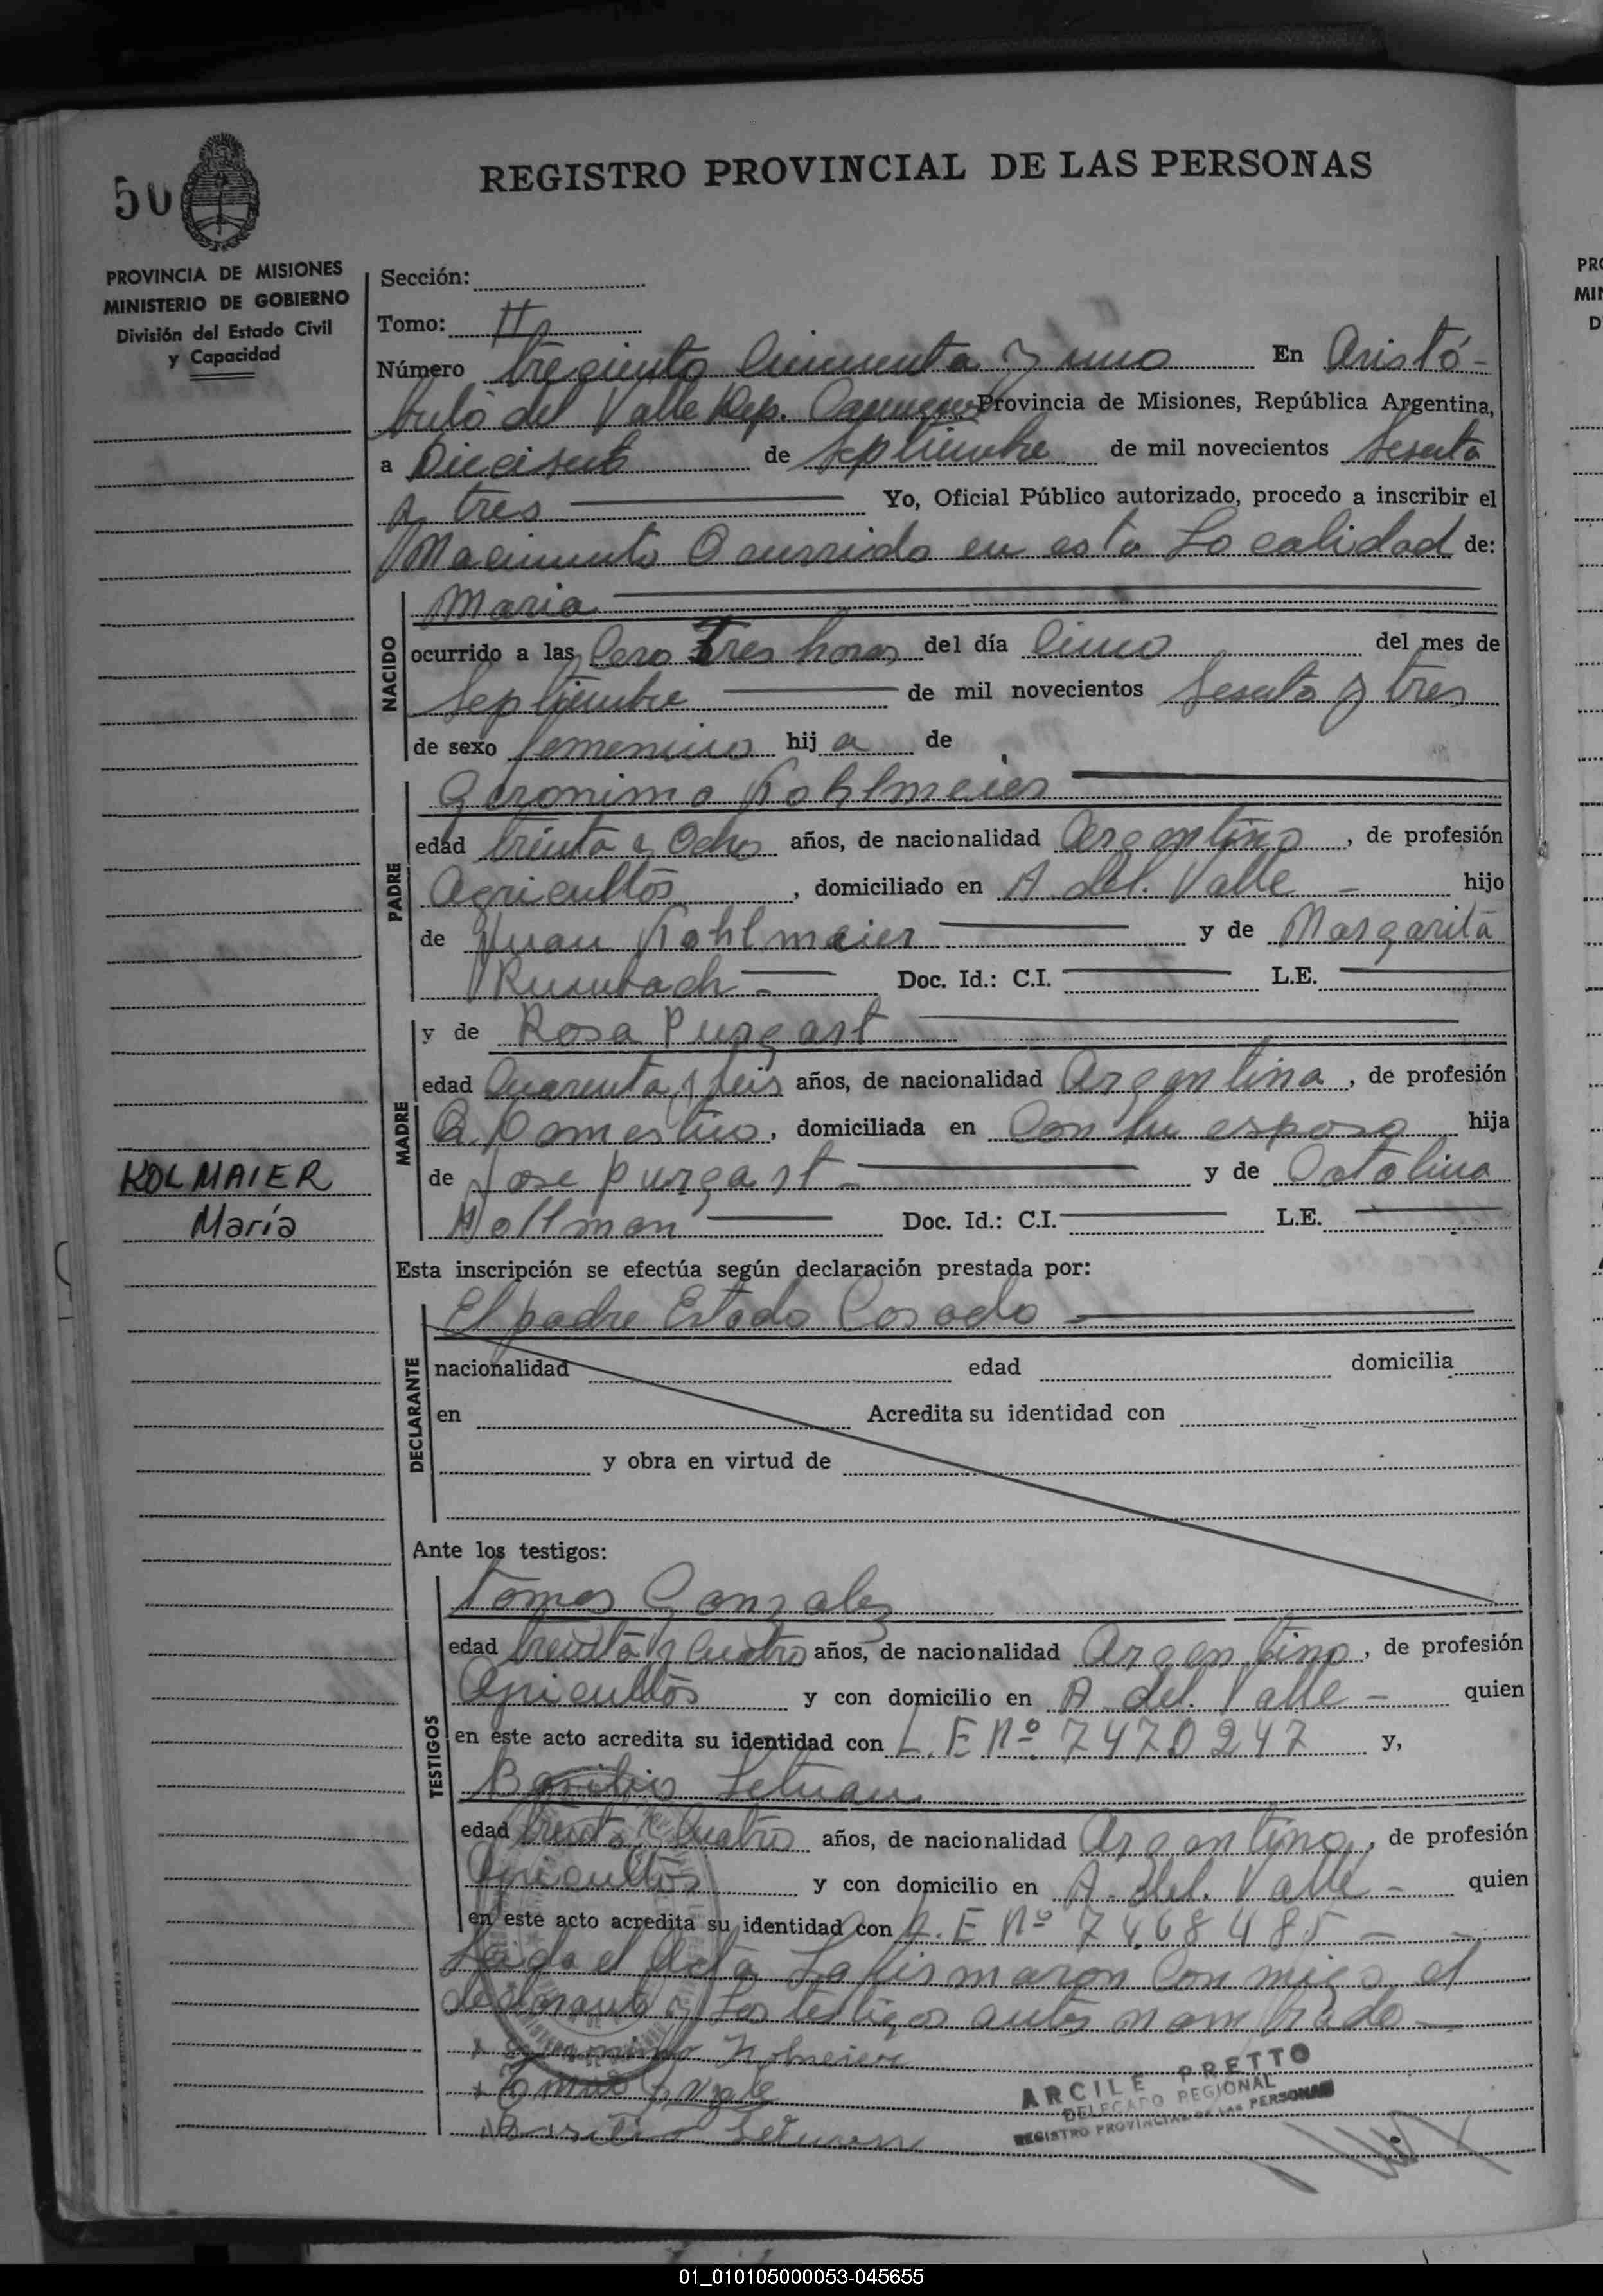 50
REGISTRO PROVINCIAL DE LAS PERSONAS
PROVINCIA DE MISIONES
MINISTERIO DE GOBIERNO
División del Estado Civil
y Capacidad
Sección:
Tomo: II
Número trecientos Cincuenta y uno En Aristó-
bulo del Valle Dep. Provincia de Misiones, República Argentina,
a Diecisiete de Septiembre de mil novecientos Sesenta
y tres Yo, Oficial Público autorizado, procedo a inscribir el
Nacimiento Ocurrido en esta Localidad de:
NACIDO
Maria
ocurrido a las Cero Tres horas del día Cinco del mes de
Septiembre de mil novecientos Sesenta y tres
de sexo femenino hij a de
PADRE
Geronimo Kohlmeier
edad treinta y Ocho años, de nacionalidad Argentino, de profesión
Agricultor, domiciliado en A. del. Valle - hijo
de Juan Kohlmeier y de Margarita
Doc. Id.: C.I. L.E.
MADRE
y de Rosa Purgart
edad Cuarenta y seis años, de nacionalidad Argentina, de profesión
Q. Domestico, domiciliada en Con su esposo hija
de Jose purgart - y de Catalina
Holtman Doc. Id.: C.I. L.E.
KOLMAIER
María
Esta inscripción se efectúa según declaración prestada por:
DECLARANTE
El padre Estado Casado
nacionalidad edad domicilia
en Acredita su identidad con
y obra en virtud de
Ante los testigos:
TESTIGOS
Tomas Gonzalez
edad treinta y Cuatro años, de nacionalidad Argentino, de profesión
Agricultor y con domicilio en A. del. Valle - quien
en este acto acredita su identidad con L. E Nº 7470247 y,
Basilio
edad treinta y Cuatro años, de nacionalidad Argentino, de profesión
Agricultor y con domicilio en A. del. Valle - quien
en este acto acredita su identidad con L. E Nº 7468485 -
Leida el Acta La firmaron Con migo el
declarante y Los testigos antes nombrado
Basilio
ARCILE PRETTO
DELEGADO REGIONAL
REGISTRO PROVINCIAL DE LAS PERSONAS
PRO
MIN
D
01_010105000053-045655